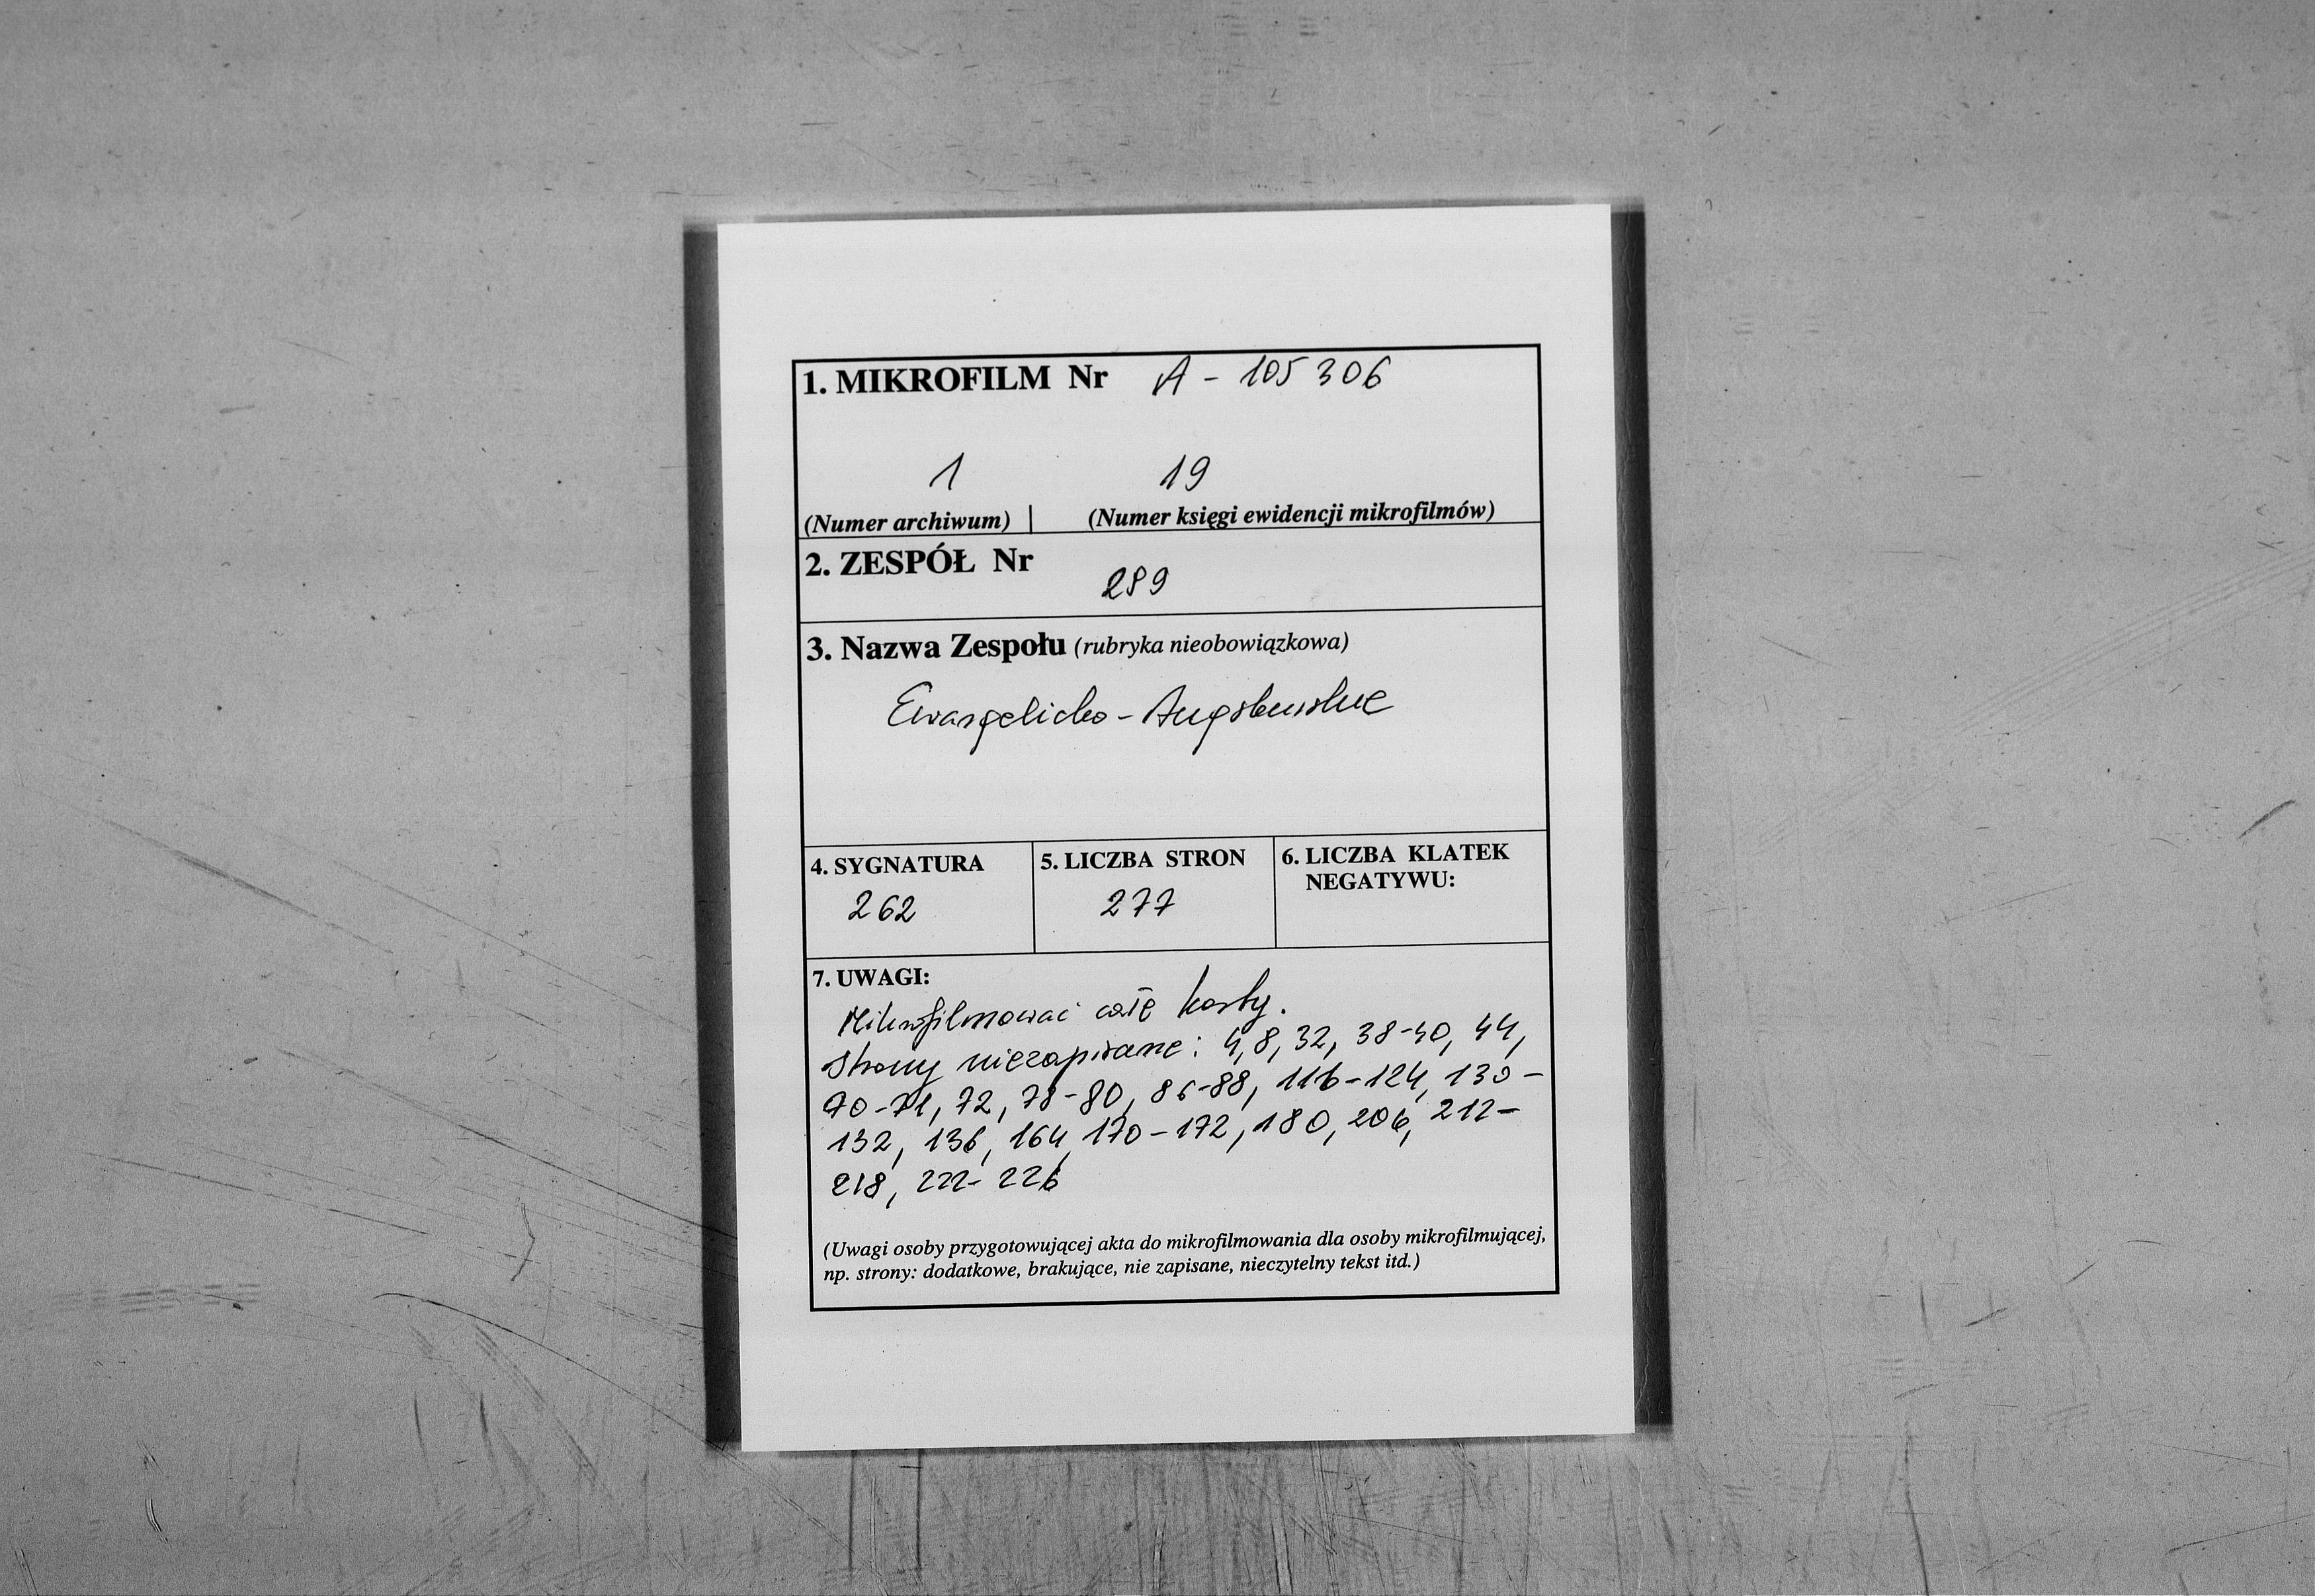 1. MIKROFILM Nr A - 105 306
1 19
(Numer archiwum) | (Numer księgi ewidencji mikrofilmów)
2. ZESPÓŁ Nr
289
3. Nazwa Zespołu (rubryka nieobowiązkowa)
Ewangelicko - Augsburskie
4. SYGNATURA 5. LICZBA STRON 6. LICZBA KLATEK
NEGATYWU:
262 277
7. UWAGI:
Mikrofilmować całe karty.
Strony niezapisane: 4, 8, 32, 38-40, 44,
70-71, 72, 78-80, 86-88, 116-124, 130-
132, 136, 164, 170-172, 180, 206, 212-
218, 222-226
(Uwagi osoby przygotowującej akta do mikrofilmowania dla osoby mikrofilmującej,
np. strony: dodatkowe, brakujące, nie zapisane, nieczytelny tekst itd.)